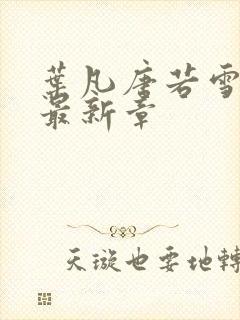 葉凡唐若雪
最新章
天璇也要地轉